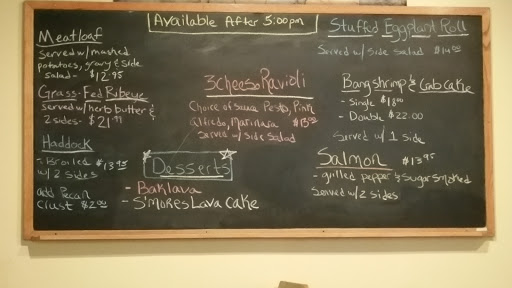 Available After 5:00pm
Meatloaf
served w/mashed
potatoes, gravy & side
salad - $12.95
Grass-Fed Ribeye
served w/herb butter &
2 sides - $21.99
Haddock
- Broiled $13.95
w/2 sides
add Pecan
Crust $2.00
3 Cheese Ravioli
Choice of sauce Pesto, Pink
alfredo, Marinara
Served w/ Side Salad
Desserts
- Baklava
- S'mores Lava Cake
Stuffed Eggplant Roll
Served w/ Side Salad
Bang shrimp & Crab Cake
- Single $18.00
- Double $22.00
Served w/ 1 Side
Salmon $13.95
- grilled pepper & Sugar Smoked
Served w/2 sides